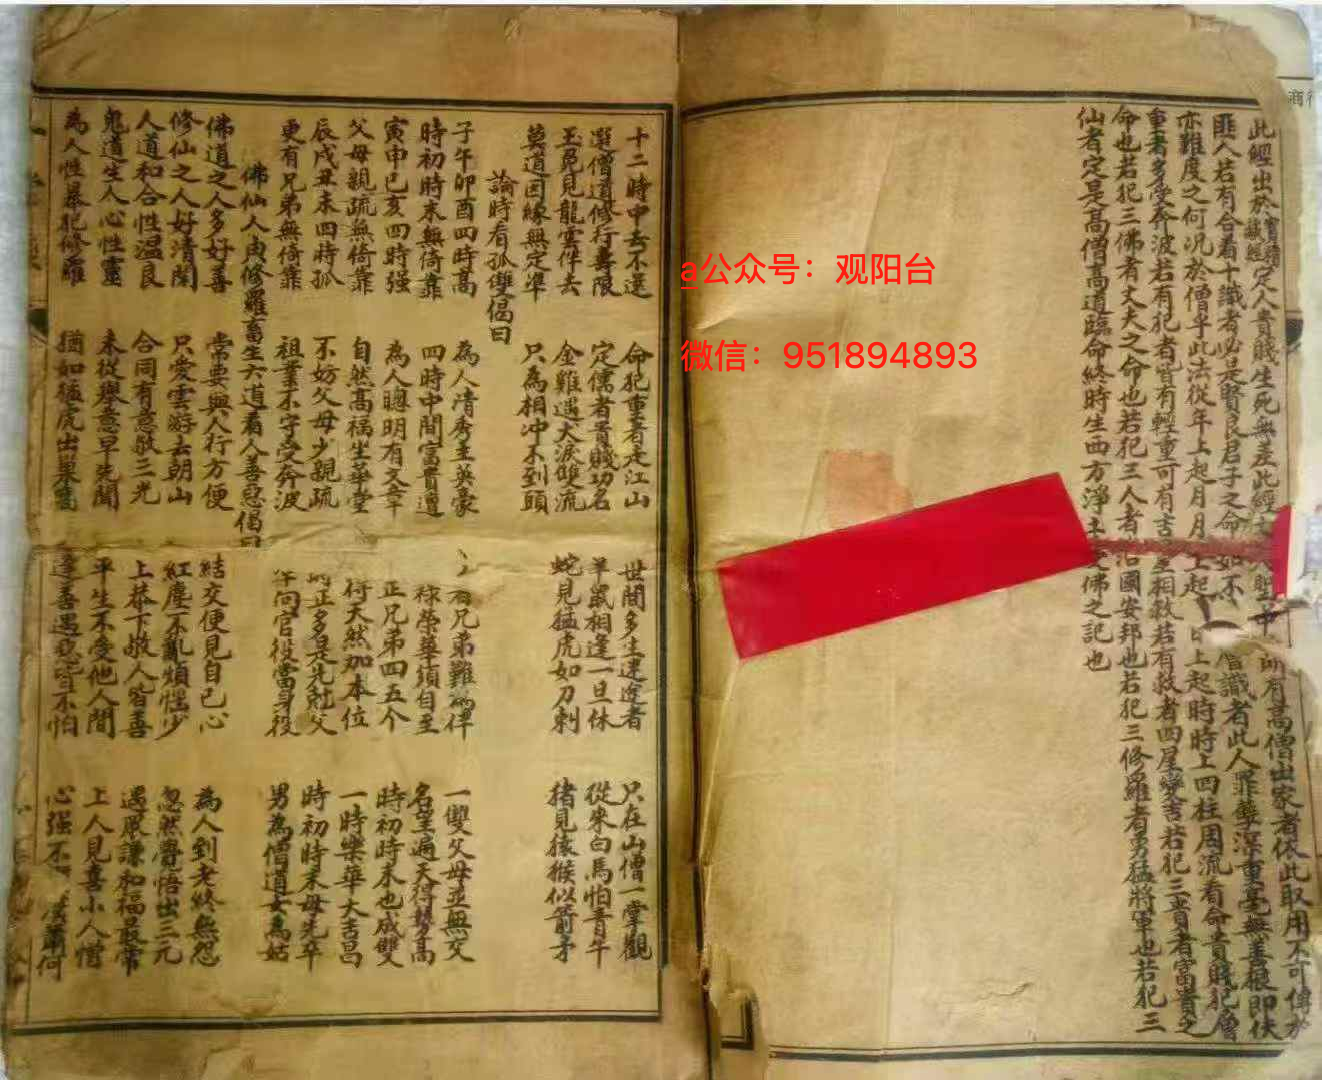 此經出於寶積藏經定人貴賤生死無差此經
所有高僧出家者依此取用不可傳於
匪人若有合着十識者必是賢良君子之命
識者此人罪孽深重毫無善根即佛
亦難度之何况於僧乎此法從年上起月月上起
日上起時時上四柱周流看命貴賤犯
重者多受奔波若有犯者皆有輕重可有吉
相救若有救者四屋變舍若犯三賢者富貴之
命也若犯三佛者丈夫之命也若犯三人者治國安邦也若犯三修羅者勇猛將軍也若犯三
仙者定是高僧高道臨命終時生西方淨土
佛之記也
a公众号：观阳台
微信：951894893
十二時中去不還 命犯重者走江山 世間多生迷途者 只在山僧一掌觀
選僧道修行壽限 定儒者貴賤功名 羊鼠相逢一旦休 從來白馬怕青牛
玉兎見龍雲伴去 金雞遇犬淚雙流 蛇見猛虎如刀刺 猪見猿猴似箭矛
莫道因緣無定準 只為相冲不到頭
論時看孤雙偈曰
子午卯酉四時髙 為人清秀主英豪 兄弟難為俾 一雙父母並無交
時初時末無倚靠 四時中間富貴遭 祿榮華須自至 名望遍天得譽高
寅申巳亥四時强 為人聰明有文章 正兄弟四五个 時初時末也成雙
父母親疏無倚靠 自然高福坐華堂 行天然加本位 一時樂華大吉昌
辰戌丑未四時孤 不妨父母少親疏 的正多是先尅父 時初時末母先卒
更有兄弟無倚靠 祖業不守受奔波 年间官役當身役 男為僧道女為姑
佛仙人鬼修羅畜生六道看人善惡偈曰
佛道之人多好善 常要與人行方便 結交便見自己心 為人到老終無怨
修仙之人好清閑 只愛雲游去朝山 紅塵不亂煩惱少 忽然覺悟出三元
人道和合性温良 合同有意敬三光 上恭下敬人皆喜 遇風謙和福最常
鬼道生人心性靈 未從舉意早先聞 平生不受他人閒 上人見喜小人憎
為人性暴犯修羅 猶如猛虎出巢窩 逢善遇惡皆不怕 心强不
蕭何